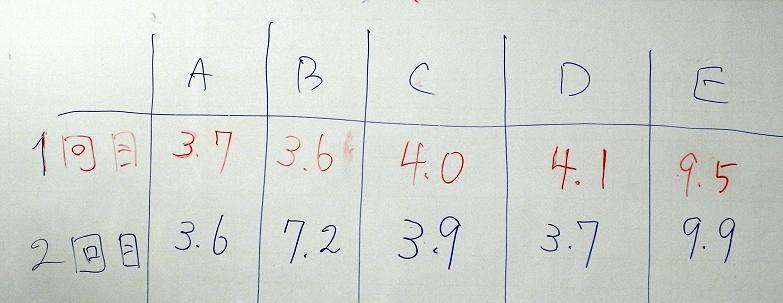 A B C D E
1回目 3.7 3.6 4.0 4.1 9.5
2回目 3.6 7.2 3.9 3.7 9.9